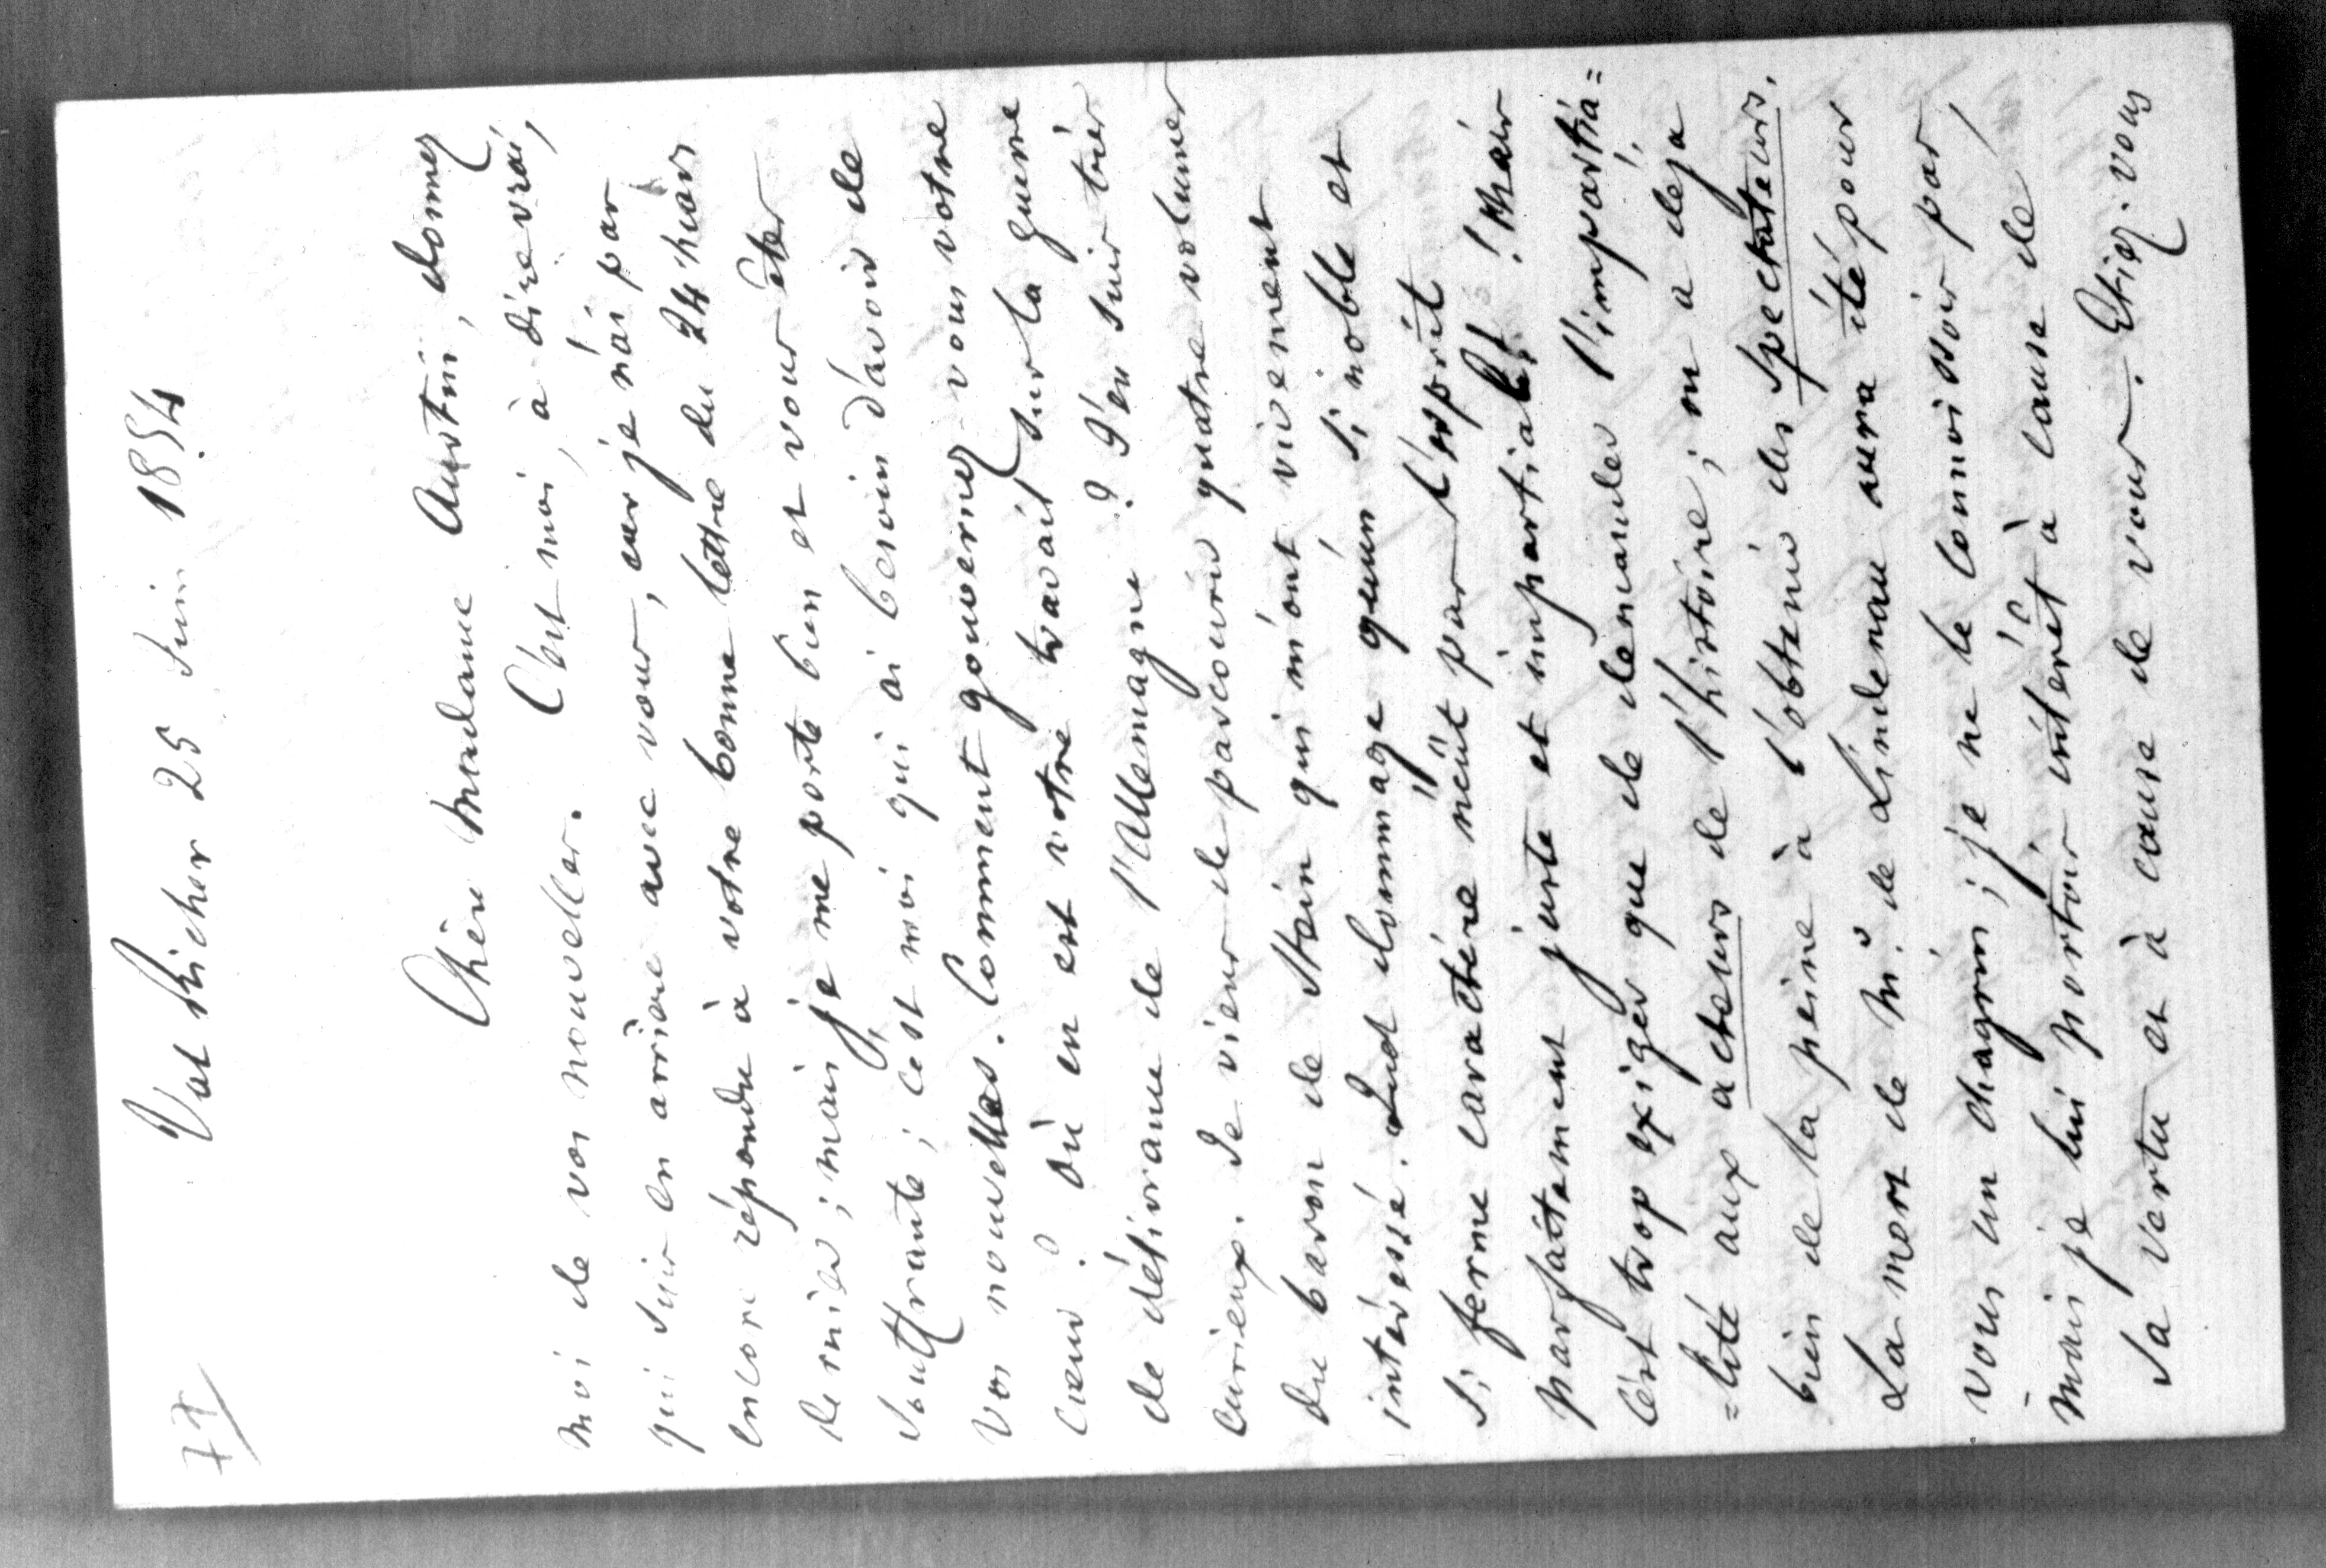 77
Val Richer 25 Juin 1854
Chère Madame Austin, donnez
moi de vos nouvelles. C'est moi, à dire vrai,
qui suis en arrière avec vous, car je n'ai pas
encore répondu à votre bonne lettre du 24 Mars
dernier ; mais je me porte bien et vous êtes
souffrante ; c'est moi qui ai besoin d'avoir de
vos nouvelles. Comment gouvernez-vous votre
coeur ? Où en est votre travail sur la guerre
de délivrance de l'Allemagne ? J'en suis très
curieux. Je viens de parcourir quatre volumes
du baron de Stein qui m'ont vivement
intéressé. Quel dommage qu'un si noble et
si ferme caractère n'eût pas l'esprit
parfaitement juste et impartial ! Mais
c'est trop exiger que de demander l'impartia=
=lité aux acteurs de l'histoire ; on a déjà
bien de la peine à l'obtenir des spectateurs.
La mort de Mr. de Lindenau aura été pour
vous un chagrin ; je ne le connoissois pas,
mais je lui portois intérêt à cause de
sa vertu et à cause de vous. Etiez-vous